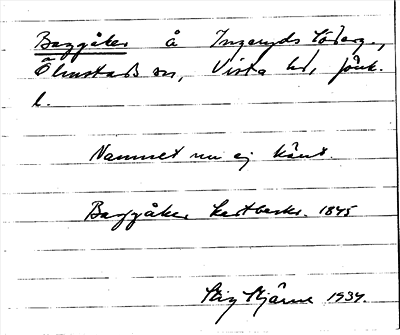 Baggåker å Ingaryds Söderg.,
Ölmstads sn, Vista hd, Jönk.
l.
Namnet nu ej känt.
Baggåker kartbeskr. 1845
Stig Hjärne 1934.